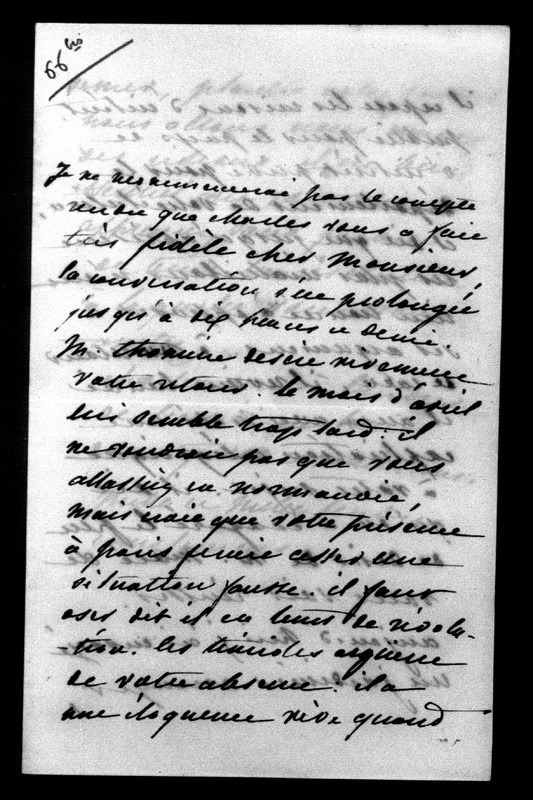 66 bis
Je ne recommencerai pas le compte
rendu que charles vous a fait
très fidèle cher Monsieur,
la conversation s'est prolongée
jusqu'à dix heures et demie.
M. thomine desire vivement
votre retour. le mois d'avril
lui semble trop tard. il
ne voudrait pas que vous
allassiez en normandie,
mais croit que votre présence
à paris ferait cesser une
situation fausse. il faut
oser dit il en tems de révolu-
-tion. les timides
de votre absence. il a
une éloquence vive quand